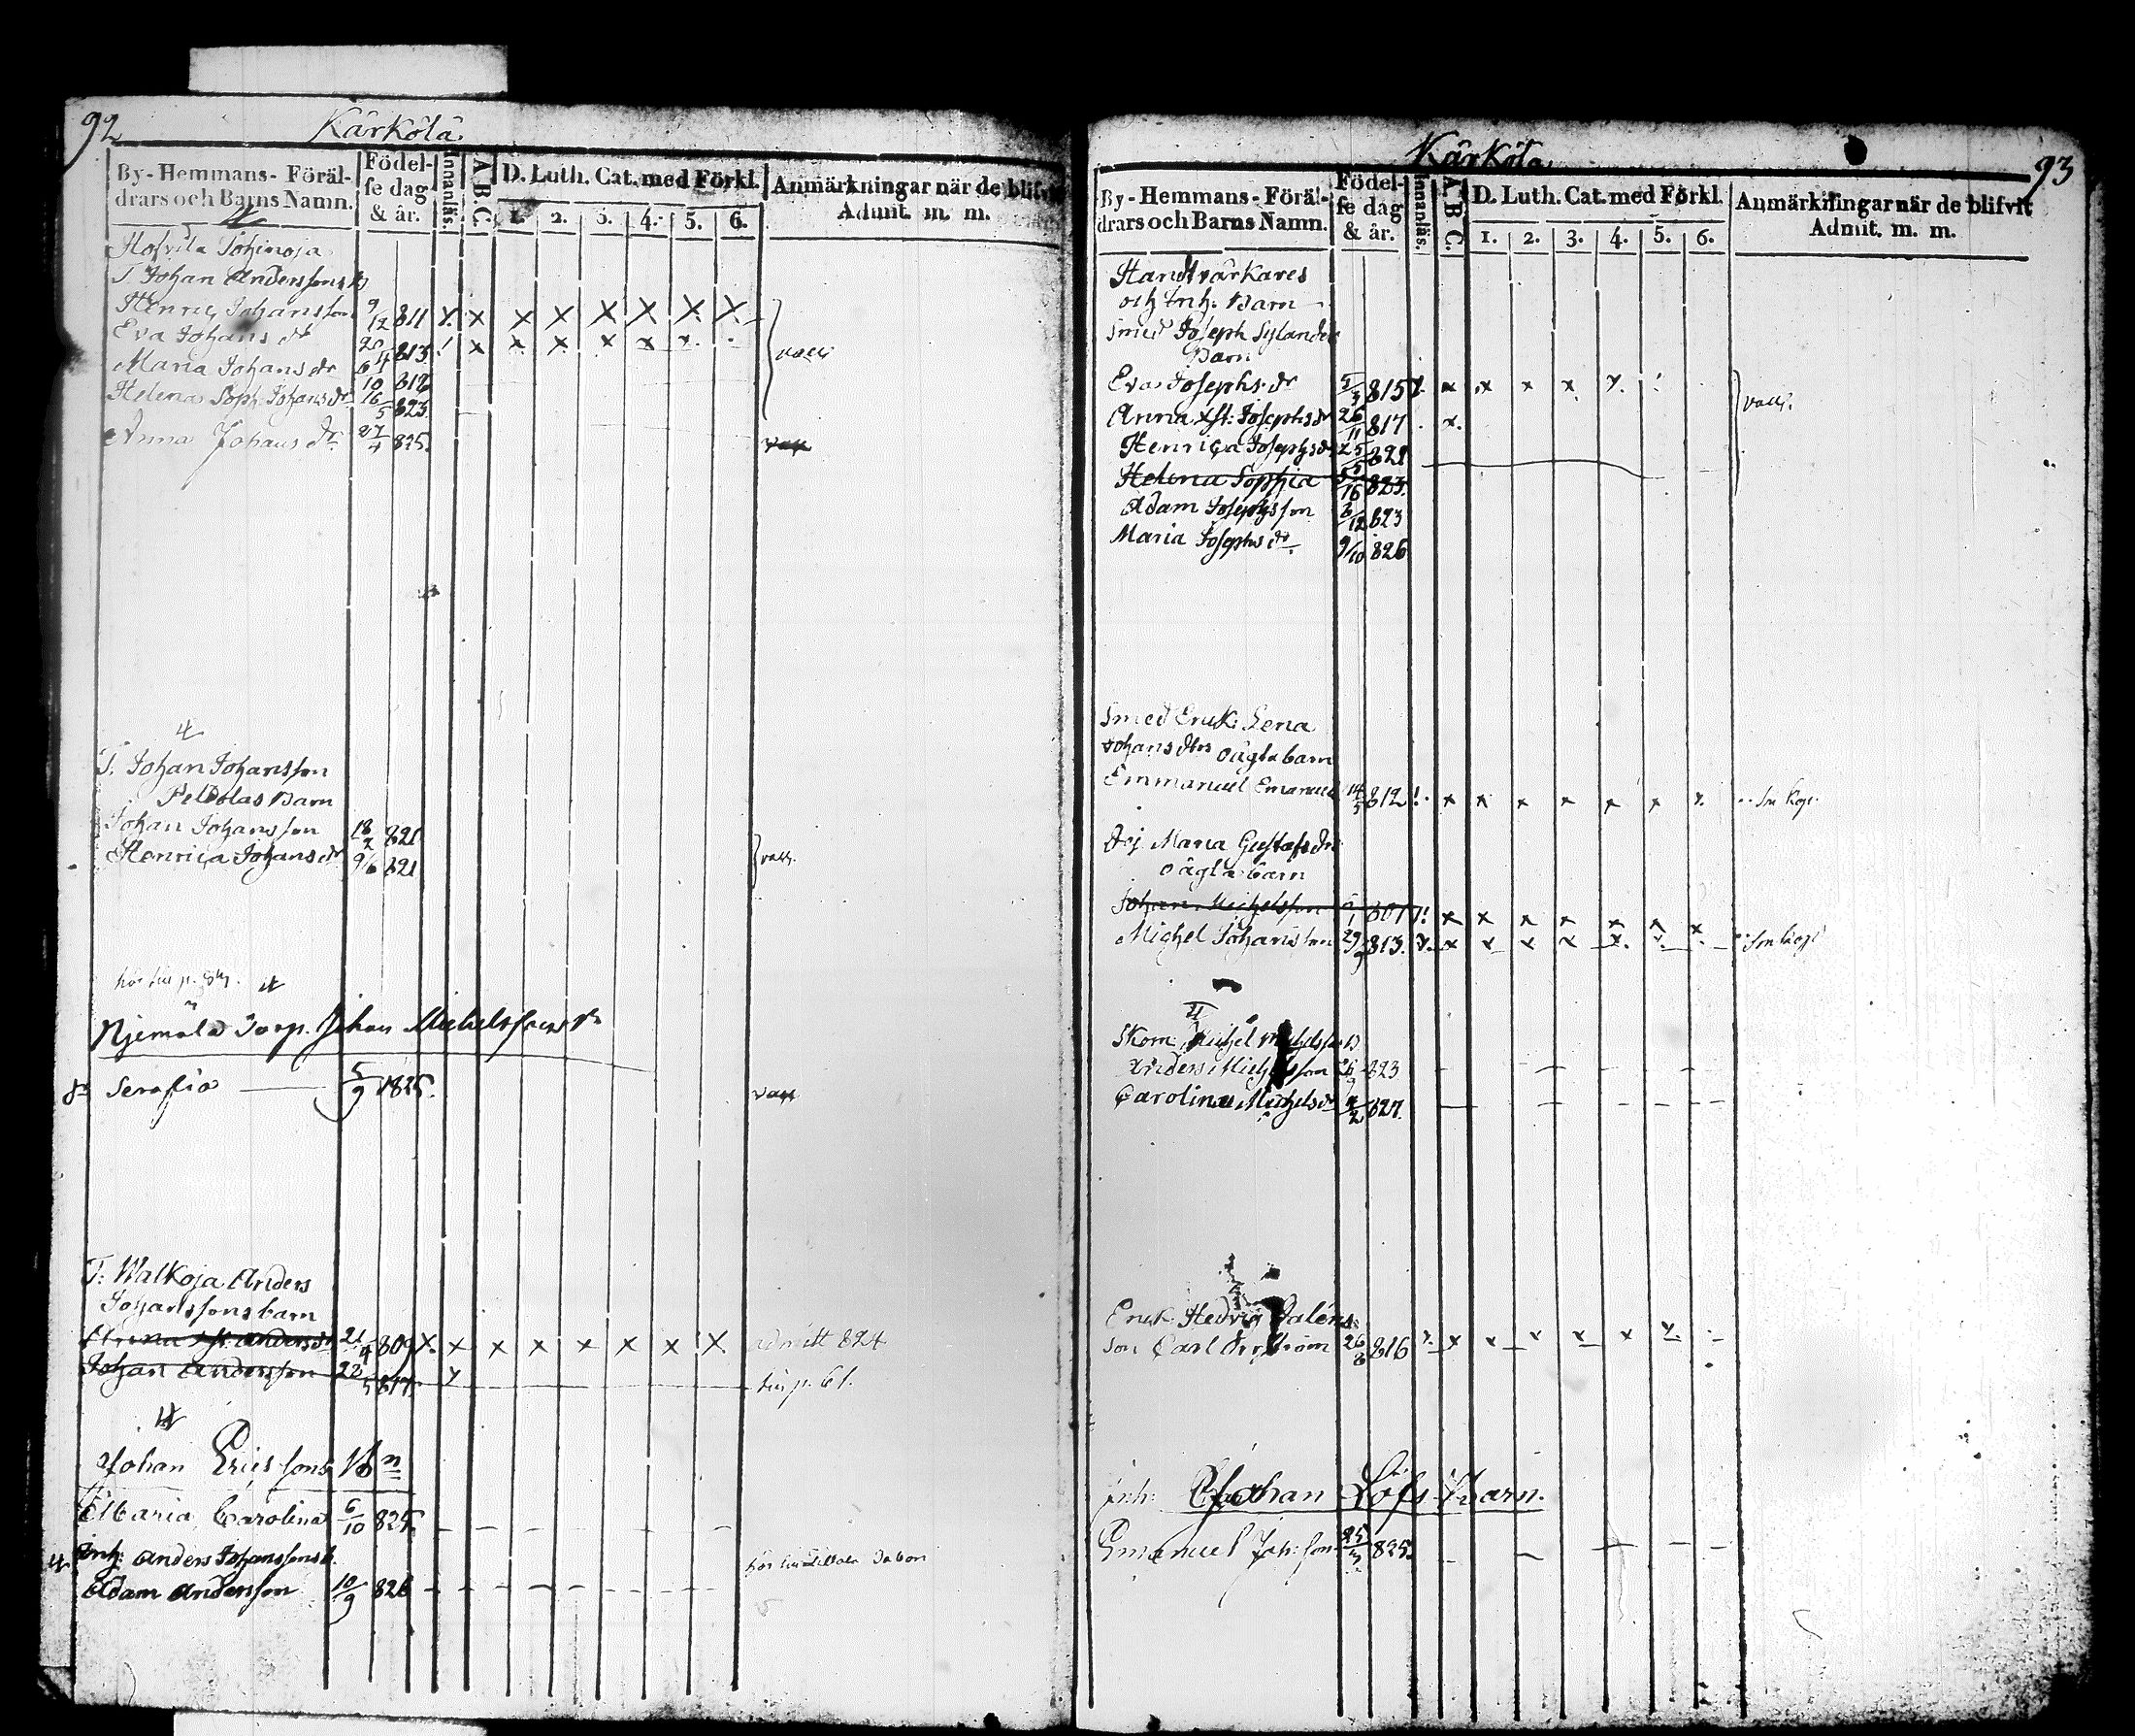 92
Kärkölä
By-Hemmans-Föräl-
drars och Barns Namn.
Födel-
se dag
& år.
Innanläs.
A.B.C.
D. Luth. Cat. med Förkl.
1. 2. 3. 4. 5. 6.
Anmärkningar när de blifvit
Admit. m. m.
T. Johan Anderssons B
Henric Johansson 9/12 811 x x x x x x x x
Eva Johans dr 20/4 813 x x x x x x
Maria Johans dr 10 818
Helena Soph. Johans dr 16/5 823
vacc
Anna Johans dr 27/4 825.
vacc
T. Johan Johansson
Barn
Johan Johansson 18/2 821
Henrica Johans dr 9/6 821
vacc.
Torp. Johan Michelssons
dr Serafia 5/9 1825.
vacc
T: Walkoja Anders
Johanssons barn
Anna Anders dr 21/4 809 x x x x x x x x admitt 824
Johan Andersson 22/5 817 x p. 61.
Johan Ericssons Bn
Maria Carolina 6/10 825
Inh: Anders Johanssons b.
Adam Andersson 10/9 826
93
Kärkölä
By-Hemmans-Föräl-
drars och Barns Namn.
Födel-
se dag
& år.
Innanläs.
A.B.C.
D. Luth. Cat. med Förkl.
1. 2. 3. 4. 5. 6.
Anmärkningar när de blifvit
Admit. m. m.
Handtvärkares
och Inh: Barn
Smed Joseph Sylanders
Barn
Eva Josephs dr 5/3 815 x x x x x x
Anna Josephs dr 26/11 817 x.
Henrica Josephs dr 25/5 821
vacc.
Helena Sophia 5/16 823.
Adam Josephsson 6/12 823
Maria Josephs dr 9/10 826
Smed Enk: Lena
Johans dtrs oägta barn
Emmanuel Emanuels 14/3 812 x x x x x x x
Maria Gustafs dr
oägta barn
Johan Michelsson 807 x x x x x x x
Michel Johansson 29/9 813. x x x x x x x
Skom. Michel Michelss B
Anders Michelsson 26 823
Carolina Michels dr 4/2 827.
Enk: Hedvig
son Carl 26/8 816 x x x x x x x
Inh: Johan Löfs Barn.
Emanuel Joh:son 25/3 825.